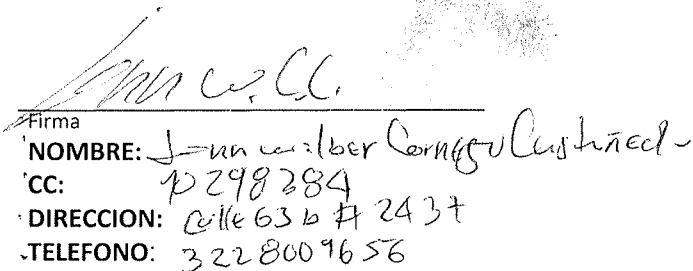 John w. C.C.
Firma
NOMBRE: John wilber Cornejo Castañeda
CC: 10298384
DIRECCION: Calle 63 b # 24 37
TELEFONO: 3228009656